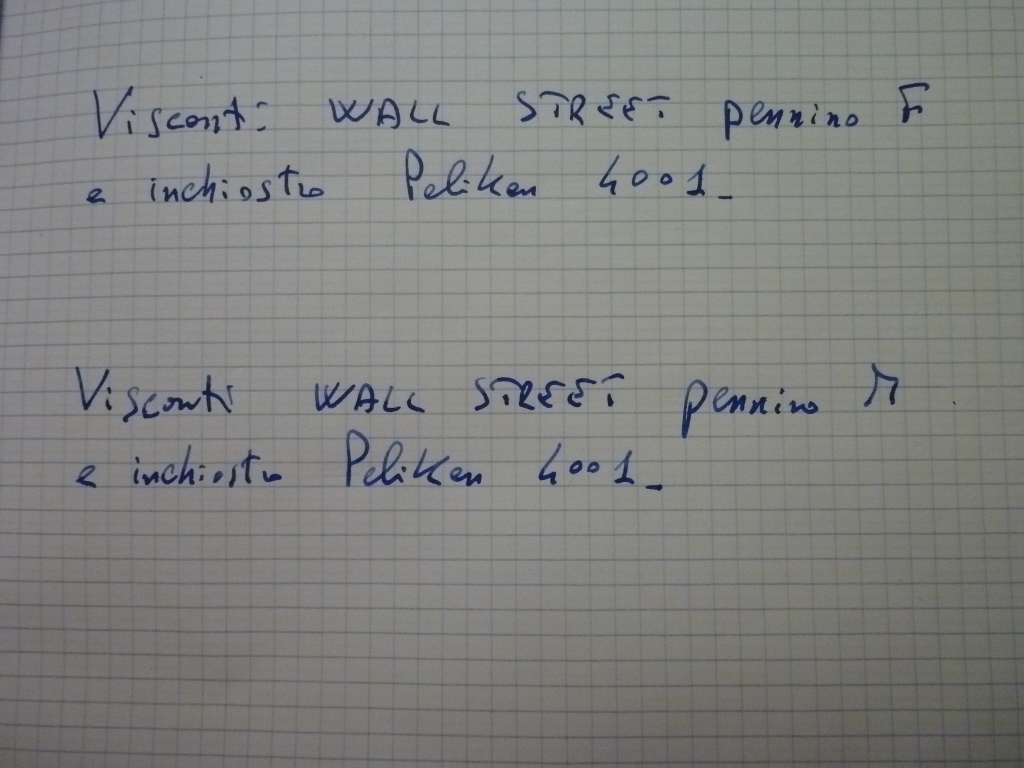 Visconti WALL STREET pennino F
e inchiostro Pelikan 4001_
Visconti WALL STREET pennino M
e inchiostro Pelikan 4001_